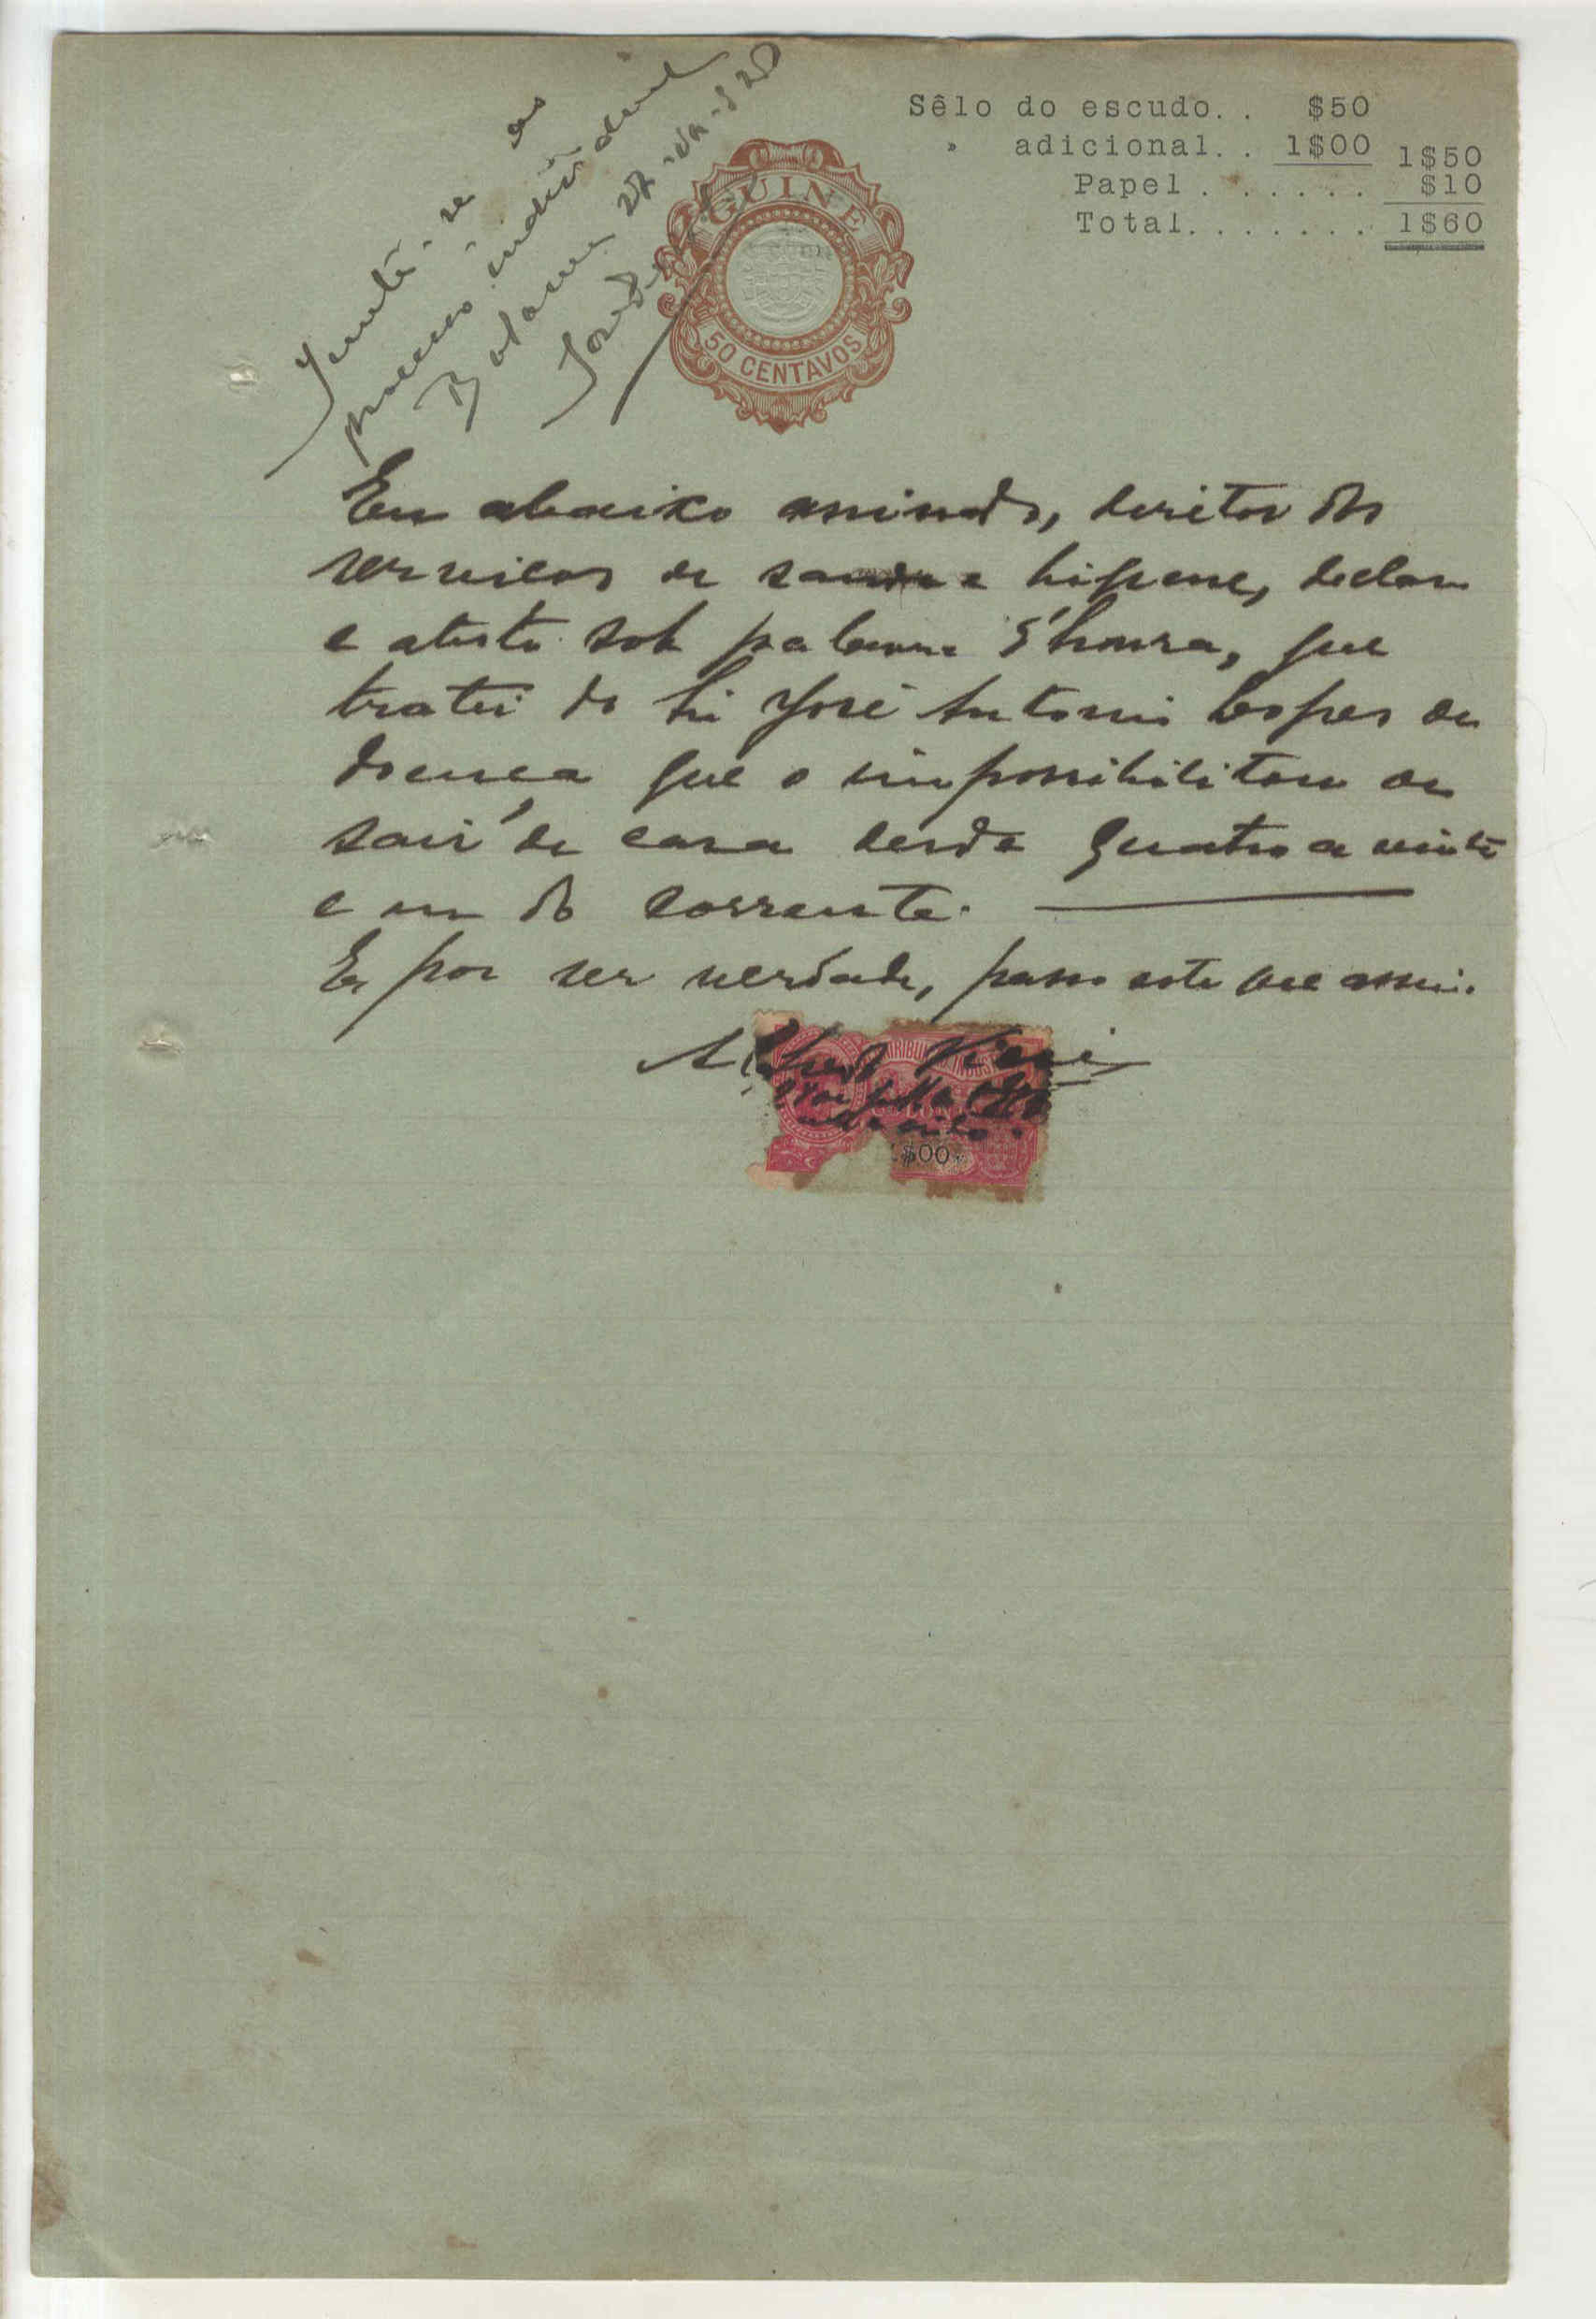 Junte-se ao
processo individual
Bolama 22
Sêlo do escudo. . $50
" adicional. . 1$00 1$50
Papel . . . . . . $10
Total. . . . . . . 1$60
GUINÉ
50 CENTAVOS
Eu abaixo assinado, diretor dos
serviços de saude e higiene, declaro
e atesto sob palavra d'honra, que
tratei do José Antonio Lopes de
doença que o impossibilitou de
sair de casa desde quatro a vinte
e um do corrente.
E por ser verdade, passo este que assino.
Alfredo Vieira
1$00